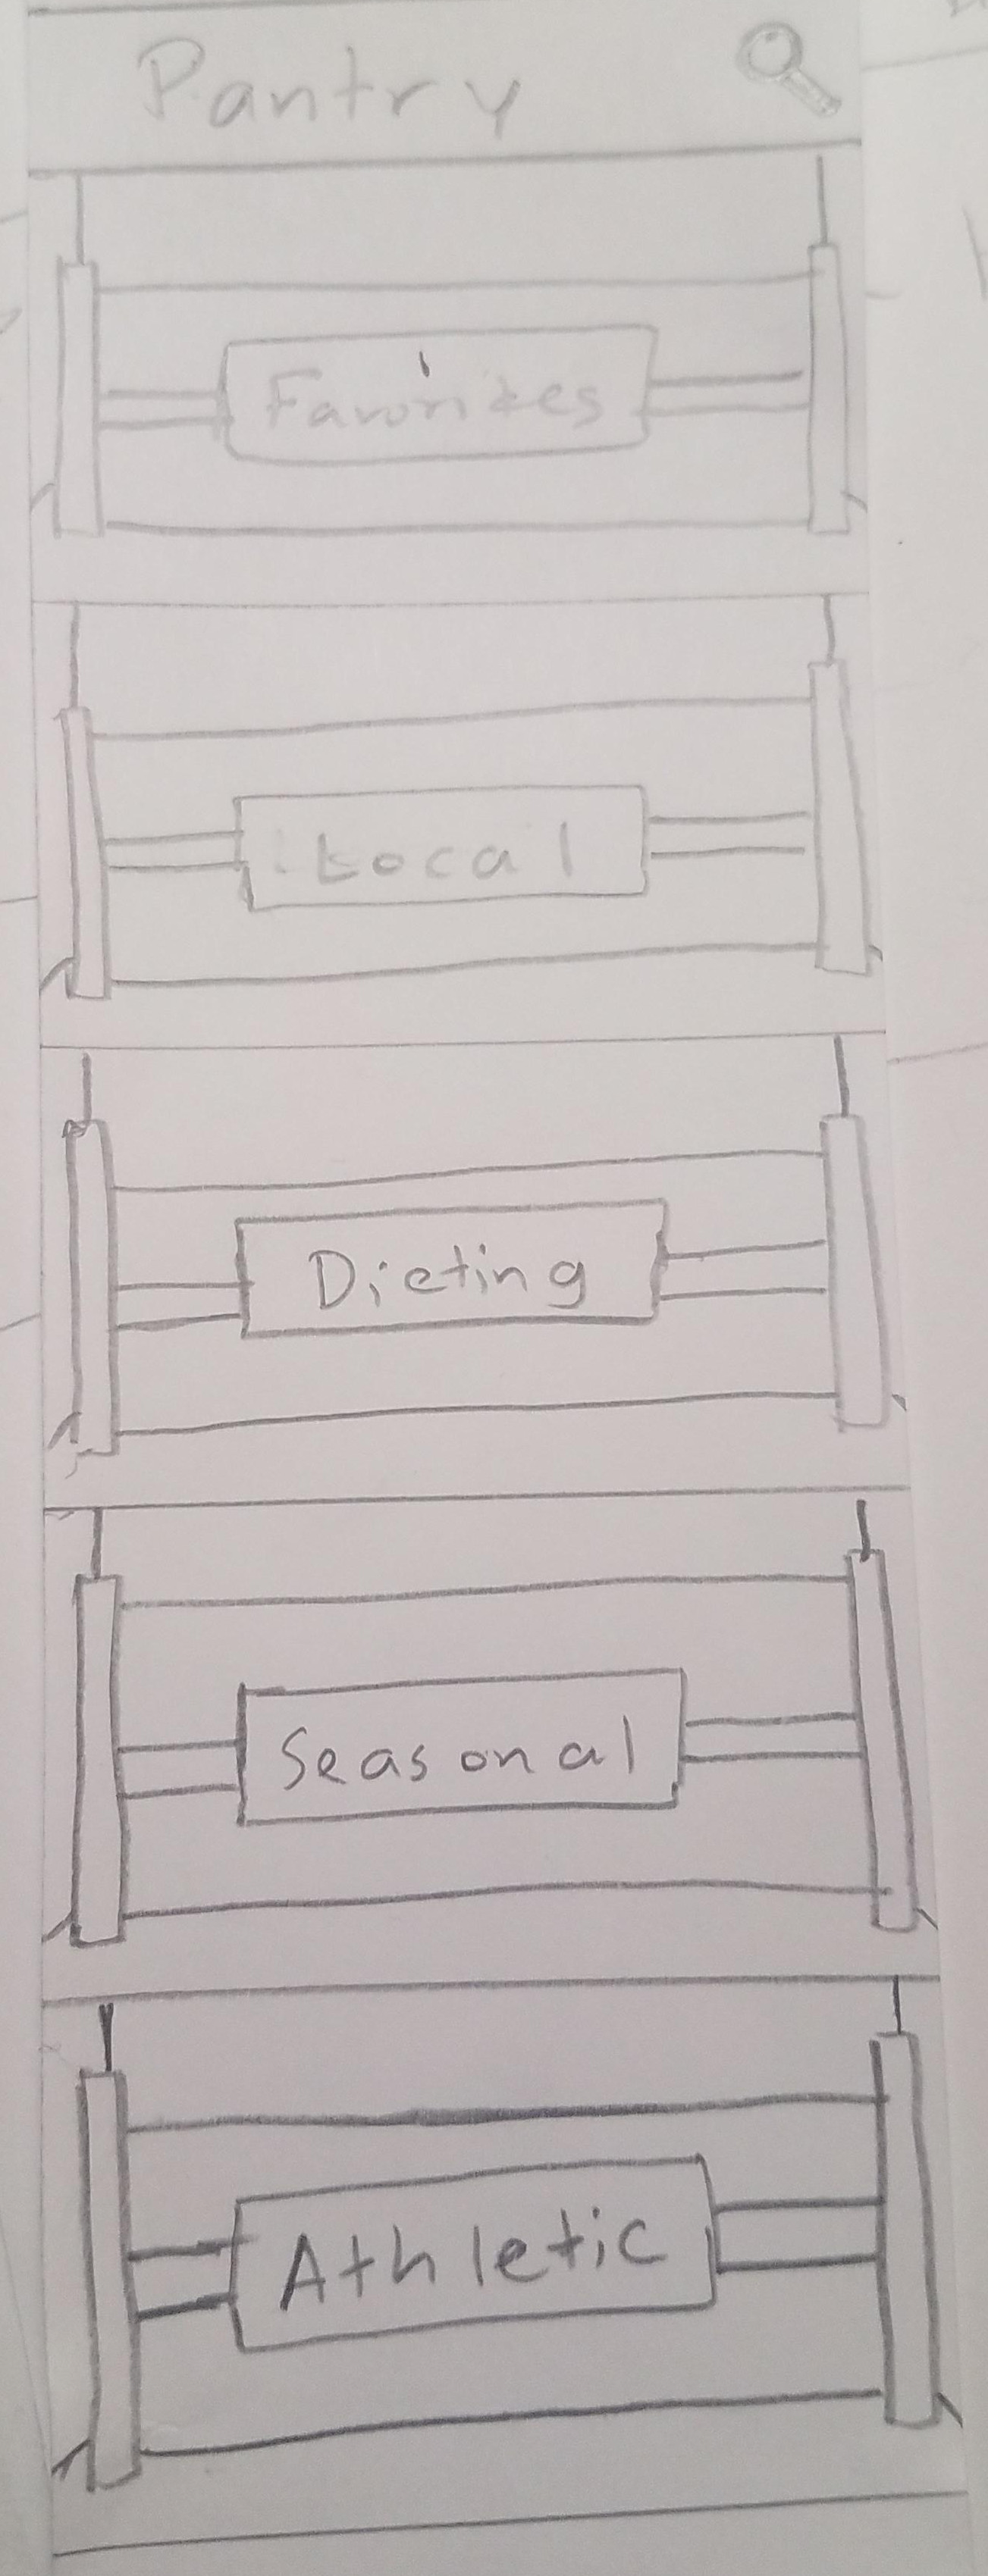 Pantry
Favorites
Local
Dieting
Seasonal
Athletic